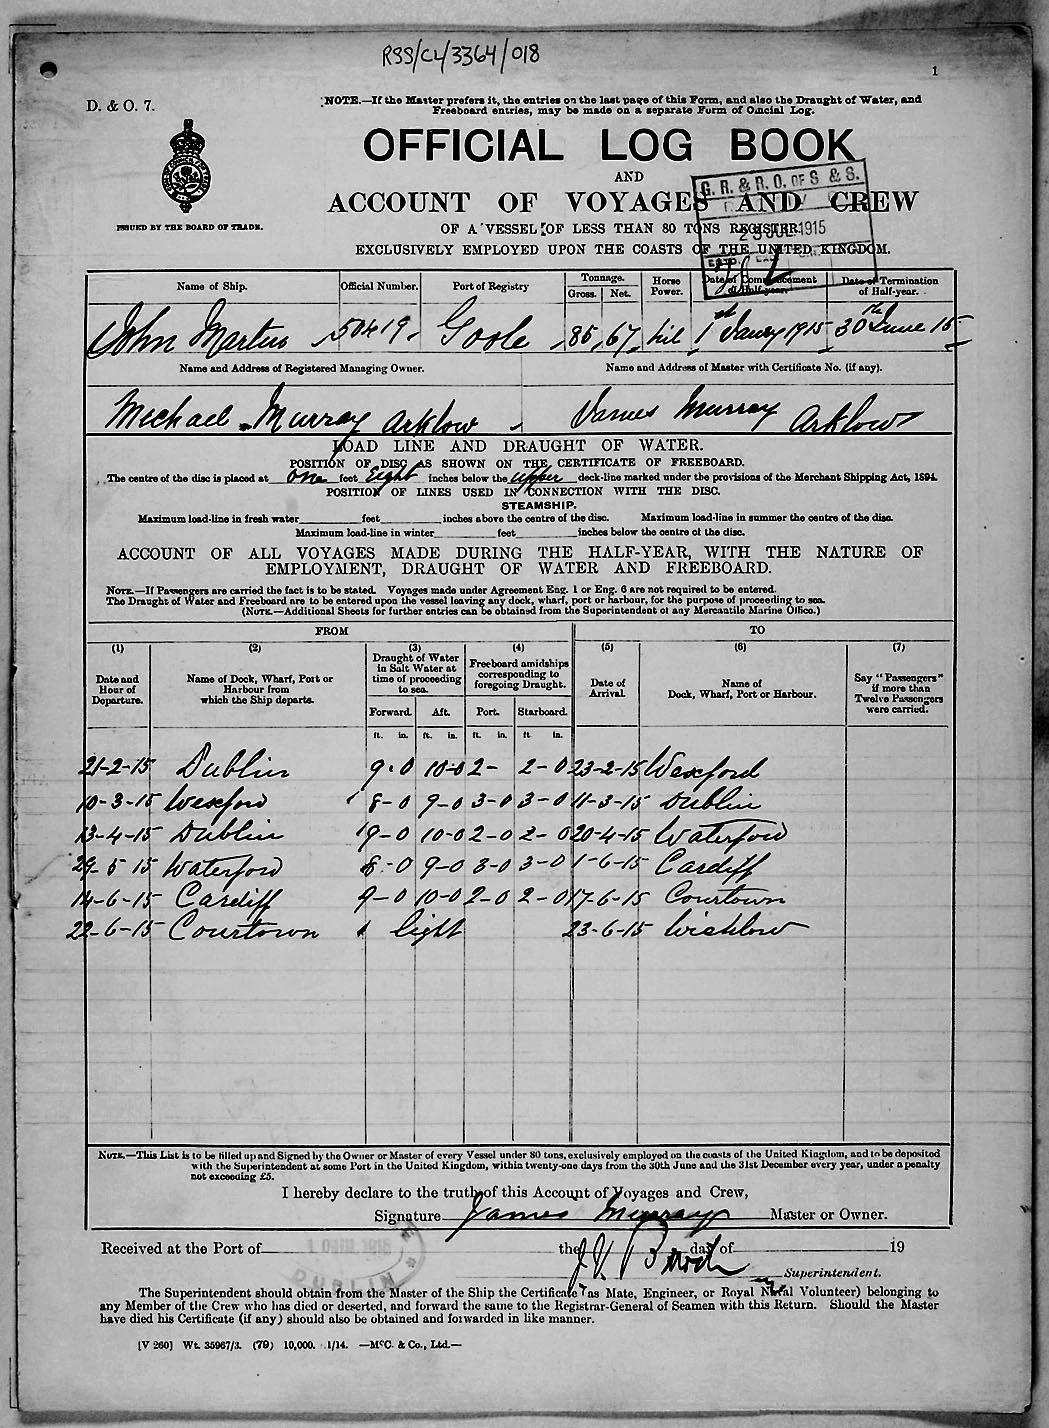 RSS/CL/3364/018
1
D. & O. 7.
NOTE.—If the Master prefers it, the entries on the last page of this Form, and also the Draught of Water, and
Freeboard entries, may be made on a separate Form of Official Log.
OFFICIAL LOG BOOK
AND
ACCOUNT OF VOYAGES AND CREW
OF A VESSEL OF LESS THAN 80 TONS REGISTER
EXCLUSIVELY EMPLOYED UPON THE COASTS OF THE UNITED KINGDOM.
ISSUED BY THE BOARD OF TRADE.
G. R. & R. O. OF S & S.
23 JUL 1915
Name of Ship. Official Number. Port of Registry Tonnage. Gross. Net. Horse Power. Date of Commencement of Half-year. Date of Termination of Half-year.
John Martin 50419 Goole 85 67 nil 1st Jany 1915 30th June 15
Name and Address of Registered Managing Owner. Name and Address of Master with Certificate No. (if any).
Michael Murray Arklow James Murray Arklow
LOAD LINE AND DRAUGHT OF WATER.
POSITION OF DISC AS SHOWN ON THE CERTIFICATE OF FREEBOARD.
The centre of the disc is placed at one feet Eight inches below the upper deck-line marked under the provisions of the Merchant Shipping Act, 1894.
POSITION OF LINES USED IN CONNECTION WITH THE DISC.
STEAMSHIP.
Maximum load-line in fresh water feet inches above the centre of the disc. Maximum load-line in summer the centre of the disc.
Maximum load-line in winter feet inches below the centre of the disc.
ACCOUNT OF ALL VOYAGES MADE DURING THE HALF-YEAR, WITH THE NATURE OF
EMPLOYMENT, DRAUGHT OF WATER AND FREEBOARD.
NOTE.—If Passengers are carried the fact is to be stated. Voyages made under Agreement Eng. 1 or Eng. 6 are not required to be entered.
The Draught of Water and Freeboard are to be entered upon the vessel leaving any dock, wharf, port or harbour, for the purpose of proceeding to sea.
(NOTE.—Additional Sheets for further entries can be obtained from the Superintendent of any Mercantile Marine Office.)
FROM TO
(1) (2) (3) (4) (5) (6) (7)
Date and Hour of Departure. Name of Dock, Wharf, Port or Harbour from which the Ship departs. Draught of Water in Salt Water at time of proceeding to sea. Freeboard amidships corresponding to foregoing Draught. Date of Arrival. Name of Dock, Wharf, Port or Harbour. Say "Passengers" if more than Twelve Passengers were carried.
Forward. Aft. Port. Starboard.
ft. in. ft. in. ft. in. ft in.
21-2-15 Dublin 9-0 10-0 2- 2-0 23-2-15 Wexford
10-3-15 Wexford 8-0 9-0 3-0 3-0 11-3-15 Dublin
13-4-15 Dublin 9-0 10-0 2-0 2-0 20-4-15 Waterford
29-5 15 Waterford 8-0 9-0 3-0 3-0 1-6-15 Cardiff
14-6-15 Cardiff 9-0 10-0 2-0 2-0 17-6-15 Courtown
22-6-15 Courtown light 23-6-15 Wicklow
NOTE.—This List is to be filled up and Signed by the Owner or Master of every Vessel under 80 tons, exclusively employed on the coasts of the United Kingdom, and to be deposited
with the Superintendent at some Port in the United Kingdom, within twenty-one days from the 30th June and the 31st December every year, under a penalty
not exceeding £5.
I hereby declare to the truth of this Account of Voyages and Crew,
Signature James Murray Master or Owner.
Received at the Port of the day of 19
DUBLIN
Superintendent.
The Superintendent should obtain from the Master of the Ship the Certificate (as Mate, Engineer, or Royal Naval Volunteer) belonging to
any Member of the Crew who has died or deserted, and forward the same to the Registrar-General of Seamen with this Return. Should the Master
have died his Certificate (if any) should also be obtained and forwarded in like manner.
[V 260] Wt. 35967/3. (79) 10,000. 1/14. —McC. & Co., Ltd.—